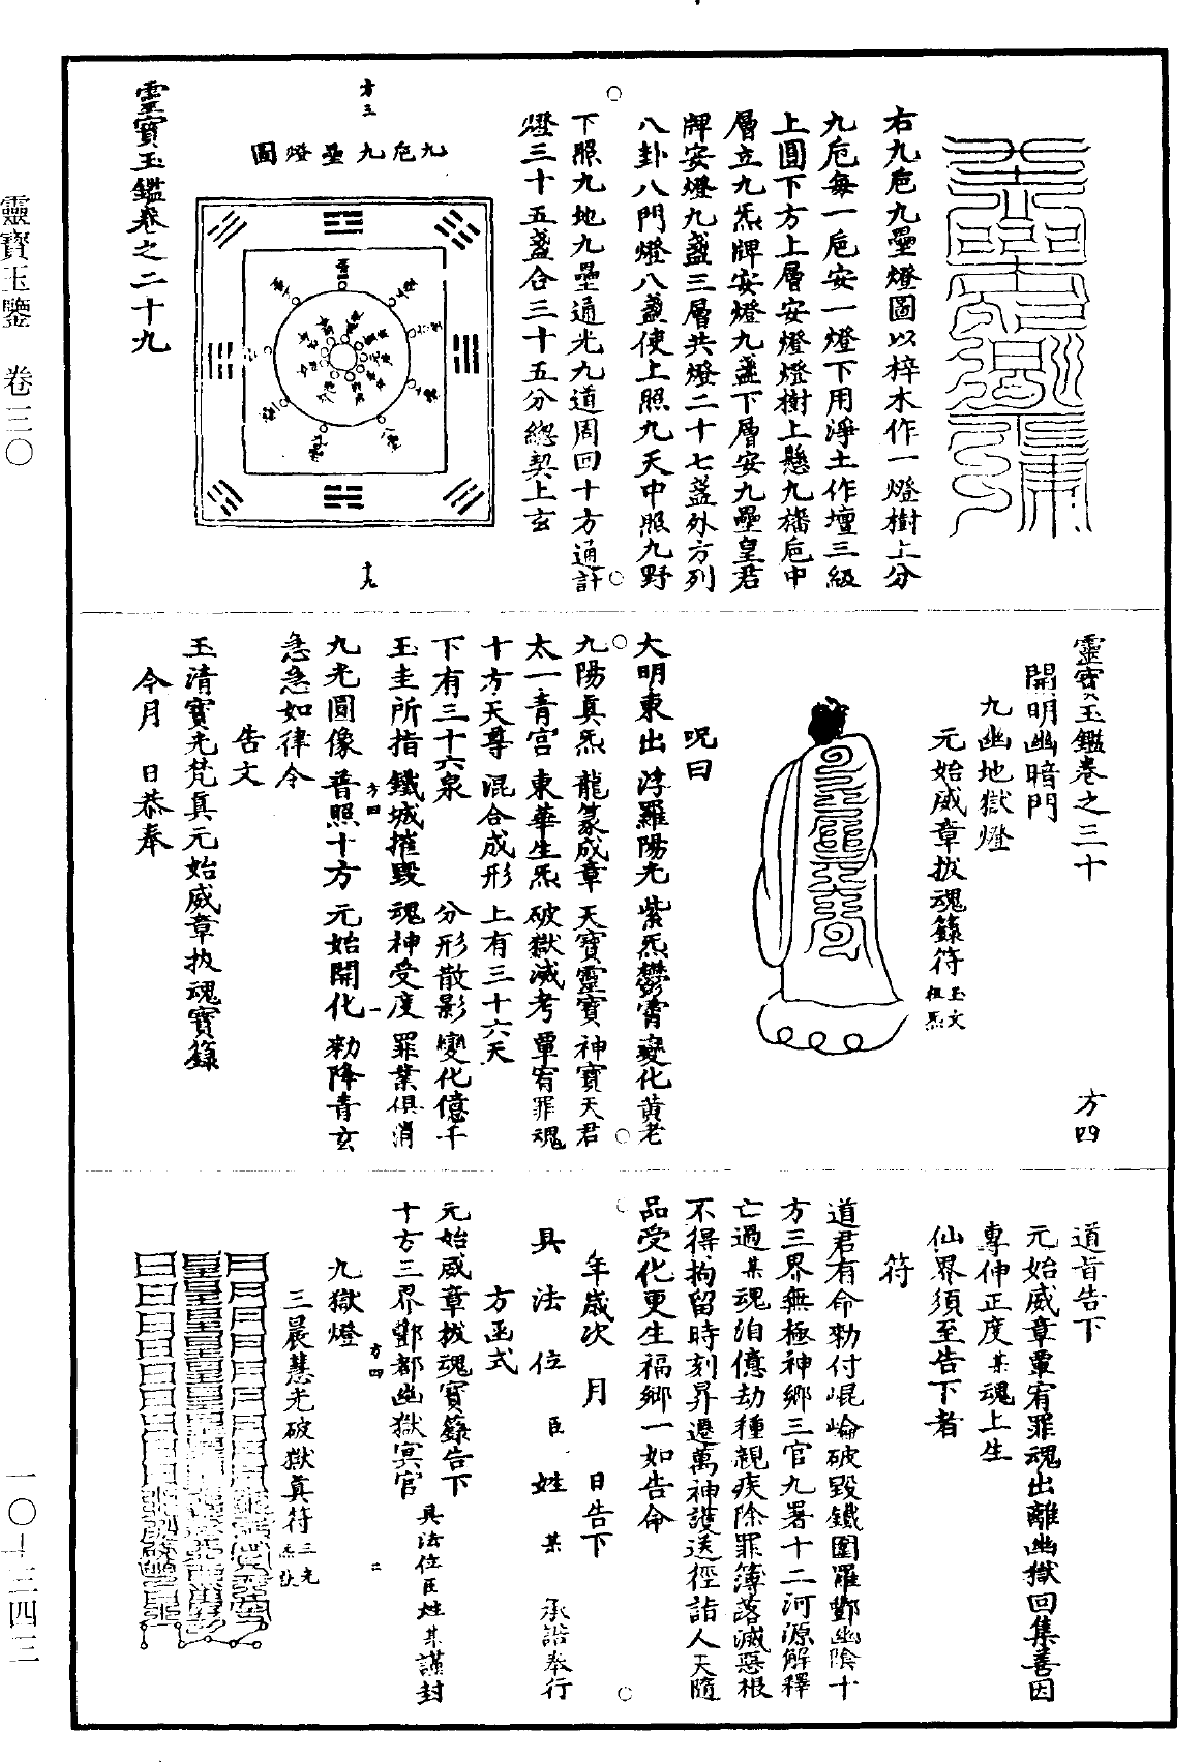 右九巵九壘燈圖以梓木作一燈樹上分
九巵每一巵安一燈下用淨土作壇三級
上圓下方上層安燈燈樹上懸九旛巵中
層立九炁牌安燈九盞下層安九壘皇君
牌安燈九盞三層共燈二十七盞外方列
八卦八門燈八盞使上照九天中照九野
下照九地九壘通光九道周回十方通計
燈三十五盞合三十五分總契上玄
方三
九巵九壘燈圖
十九
靈寶玉鑑卷之二十九
靈寶玉鑑卷之三十
方四
開明幽暗門
九幽地獄燈
元始威章拔魂籙符玉文祖炁
呪曰
大明東出 浮羅陽光 紫炁鬱霄 變化黃老
九陽真炁 龍篆成章 天寶靈寶 神寶天君
太一青宮 東華生炁 破獄滅考 覃宥罪魂
十方天尊 混合成形 上有三十六天
下有三十六泉 分形散影 變化億千
玉圭所指 鐵城摧毀 魂神受度 罪業俱消
方四
一
九光圓像 普照十方 元始開化 勑降青玄
急急如律令
告文
玉清寶光梵真元始威章拔魂寶籙
今月 日恭奉
道旨告下
元始威章覃宥罪魂出離幽獄回集善因
專伸正度某魂上生
仙界須至告下者
符
道君有命勑付崐崘破毀鐵圍羅酆幽陰十
方三界無極神鄉三官九署十二河源解釋
亡過某魂洎億劫種親疾除罪簿落滅惡根
不得拘留時刻昇遷萬神護送徑詣人天隨
品受化更生福鄉一如告命
年歲次 月 日告下
具法位臣姓某 承誥奉行
方函式
元始威章拔魂寶籙告下
十方三界酆都幽獄冥官 具法位臣姓某謹封
方四
二
九獄燈
三晨慧光破獄真符三光炁訣
靈寶玉鑒 卷三〇
一〇—三四三